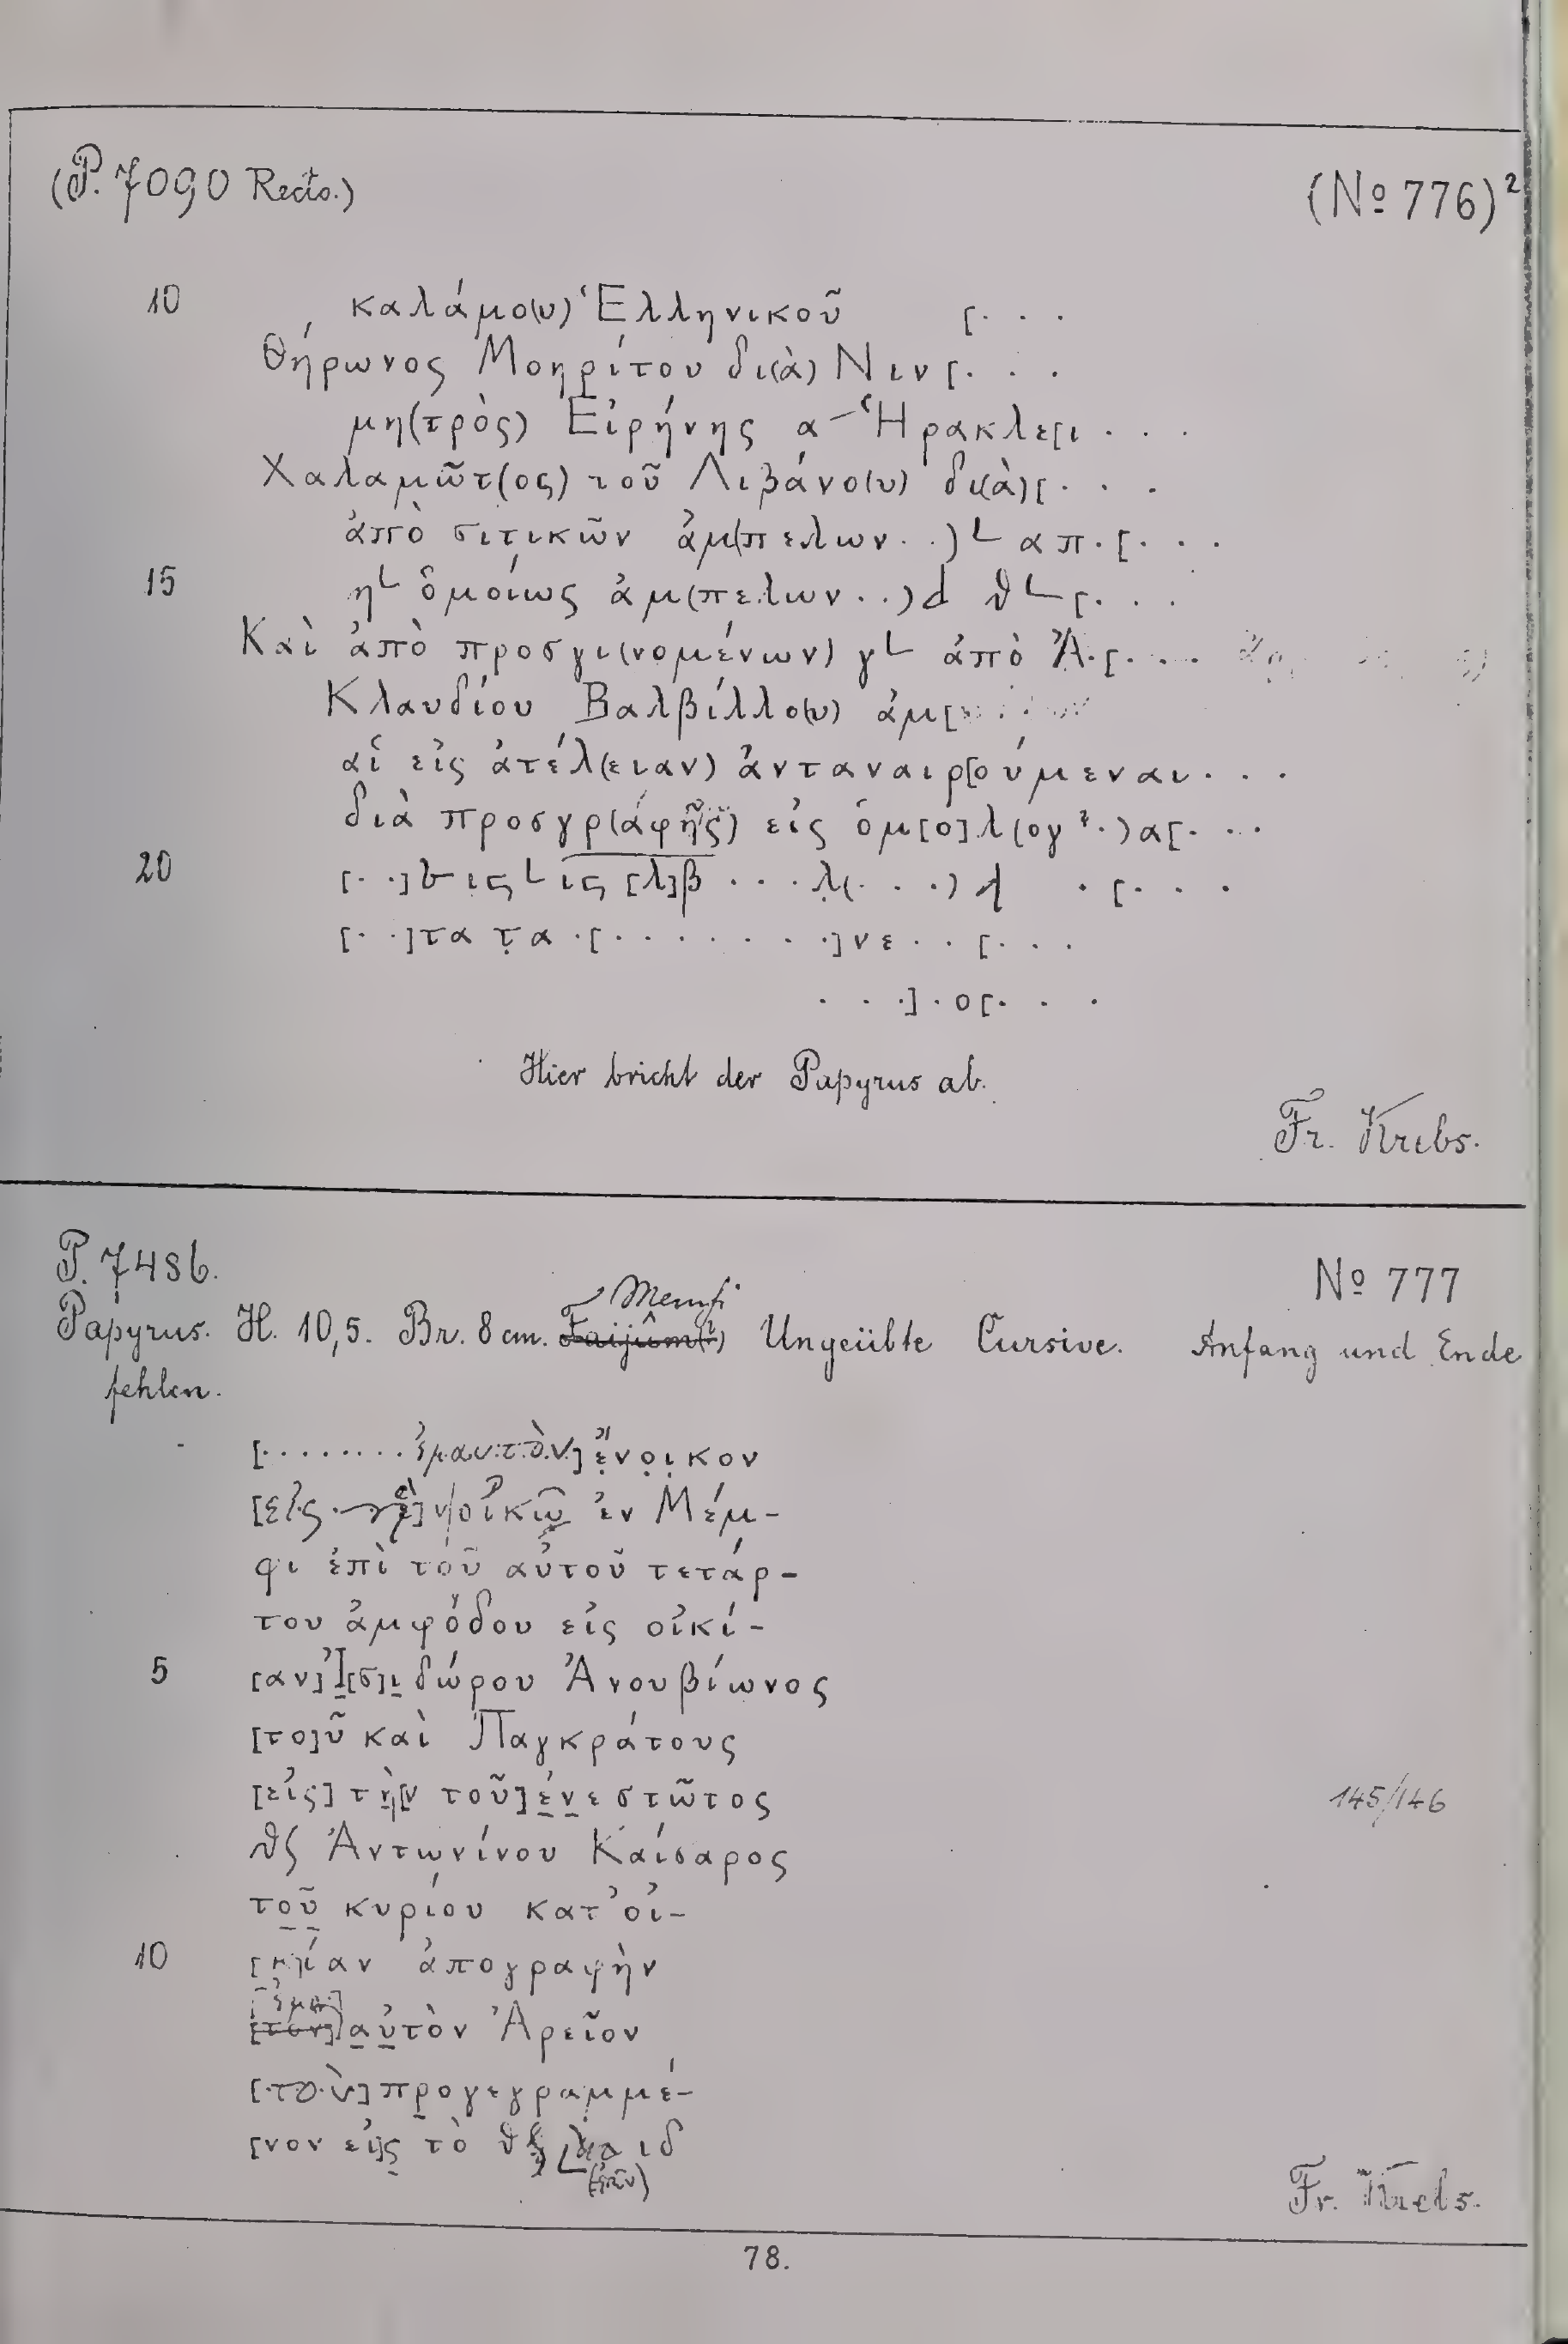 (P. 7090 Recto.) (No 776)²
10 καλάμο(υ) Ἑλληνικοῦ [. . .
Θήρωνος Μοηρίτου δι(ὰ) Νιν[. . .
μη(τρὸς) Εἰρήνης α – Ἡρακλε[ι . . .
Χαλαμῶτ(ος) τοῦ Λιβάνο(υ) δι(ὰ)[. . .
ἀπὸ σιτικῶν ἀμ(πελων . .) L απ . [. . .
15 η L ὁμοίως ἀμ(πελων . .) d θ L [. . .
Καὶ ἀπὸ προσγι(νομένων) γ L ἀπὸ Ἀ . [. . . .
Κλαυδίου Βαλβίλλο(υ) ἀμ[
αἱ εἰς ἀτέλ(ειαν) ἀνταναιρ[ούμεναι . . .
διὰ προσγρ(άφης) εἰς ὁμ[ο]λ(ογ ? .) α[. . .
20 [. .] ις L ις [λ]β . . . λ(. . .) . [. . .
[. .]τα τα . [. . . . . . . .]νε . . [. . .
. . .] . ο[. . .
Hier bricht der Papyrus ab.
Fr. Krebs.
P. 7486. No 777
Memfi
Papyrus. H. 10,5. Br. 8 cm. Faijûm(?) Ungeübte Cursive. Anfang und Ende
fehlen.
[. . . . . . . . ἐμαυτὸν] ἔνοικον
[εἰς οἰκῶ ἐν Μέμ-
φι ἐπὶ τοῦ αὐτοῦ τετάρ-
του ἀμφόδου εἰς οἰκί-
5 [αν] Ἰ[σ]ιδώρου Ἀνουβίωνος
[το]ῦ καὶ Παγκράτους
[εἰς] τὴ[ν τοῦ] ἐνεστῶτος 145/146
θϛ Ἀντωνίνου Καίσαρος
τοῦ κυρίου κατ’ οἰ-
10 [κ]ίαν ἀπογραφὴν
[ἐμ]
[τὸν] αὐτὸν Ἀρεῖον
[τὸν] προγεγραμμέ-
[νον εἰ]ς τὸ θ L ιδ
(ἐτῶν)
Fr. Krebs.
78.